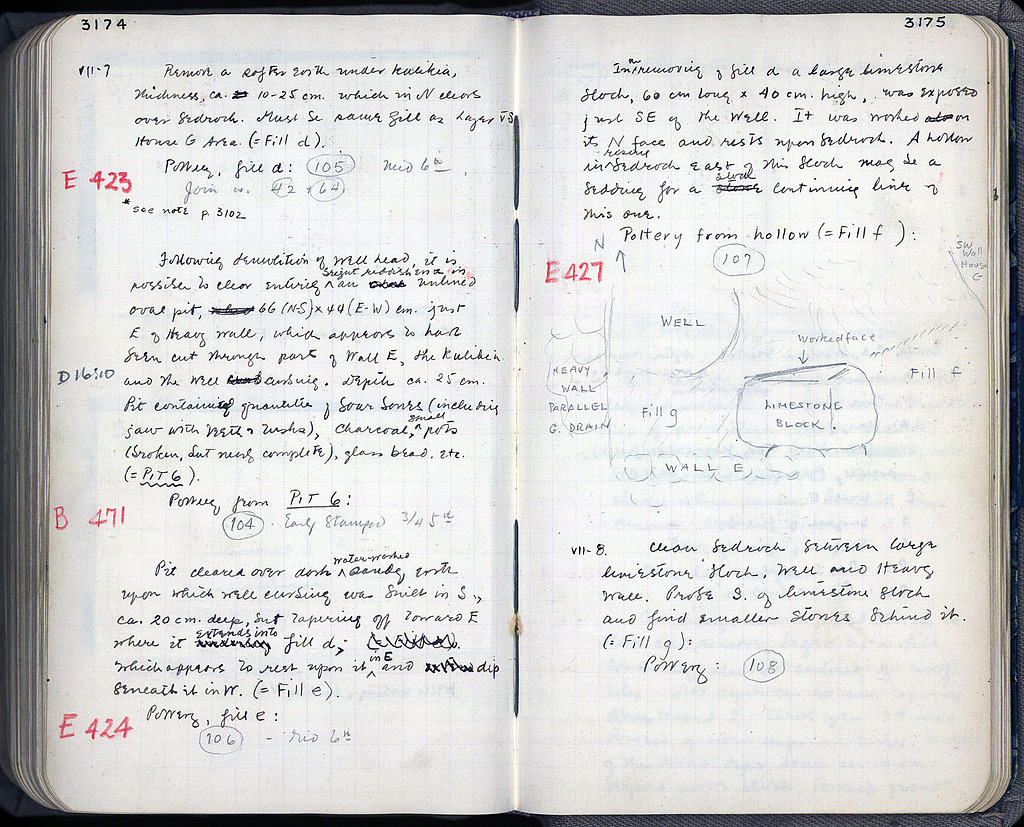 3174
VII-7 Remove a softer earth under kalikia,
thickness, ca. 10-25 cm. which in N clears
over bedrock. Must be same fill as Layer VS
House G Area. (= Fill d).
Pottery, fill d: 105 Mid 6th.
E 423
Join w. 42 + 64
* see note p. 3102
Following demolition of Well head, it is
possible to clear entirely an unlined
oval pit, 66 (N-S) x 44 (E-W) cm. just
E of Heavy Wall, which appears to have
been cut through part of Wall E, the kalikia
D 16:10
and the well curbing. Depth ca. 25 cm.
Pit contained quantities of boar bones (including
jaw with teeth & tusks), charcoal, small pots
(broken, but nearly complete), glass bead. etc.
(= PIT 6).
Pottery from PIT 6:
B 471
104 - Early Stamped 3/4 5th
Pit cleared over dark water-washed sandy earth
upon which well curbing was built in S.,
ca. 20 cm. deep, but tapering off toward E
where it extends into fill d;
which appears to rest upon it in E and dip
beneath it in W. (= Fill e).
Pottery, fill e:
E 424
106 - Mid 6th
3175
In removing of fill d a large limestone
block, 60 cm long x 40 cm. high, was exposed
just SE of the Well. It was worked on
its N face and rests upon bedrock. A hollow
in bedrock east of this block may be a
bedding for a continuing line of
this one.
Pottery from hollow (= Fill f ):
E 427
107
N
SW
Wall
House
G
WELL
worked face
HEAVY
WALL
PARALLEL
G. DRAIN
Fill g
LIMESTONE
BLOCK.
Fill f
WALL E
VII-8. Clean bedrock between large
limestone block, Well and Heavy
Wall. Probe S. of limestone block
and find smaller stones behind it.
(= Fill g):
Pottery: 108